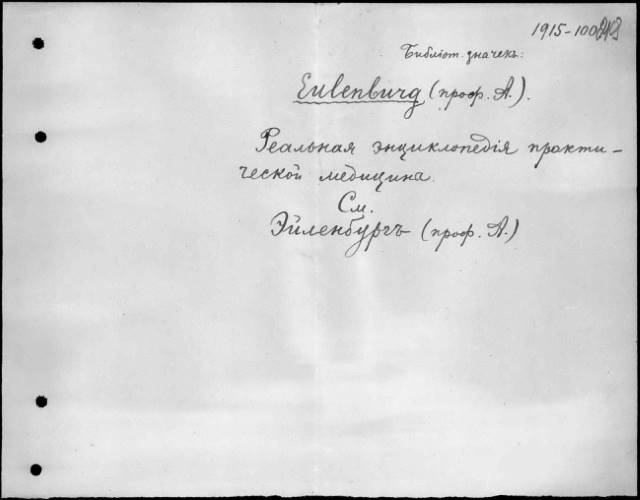 1915-100
Библіот. значекъ:
Eulenburg (проф. А.).
Реальная энциклопедія практи-
ческой медицина.
См.
Эйленбургъ (проф. А.)